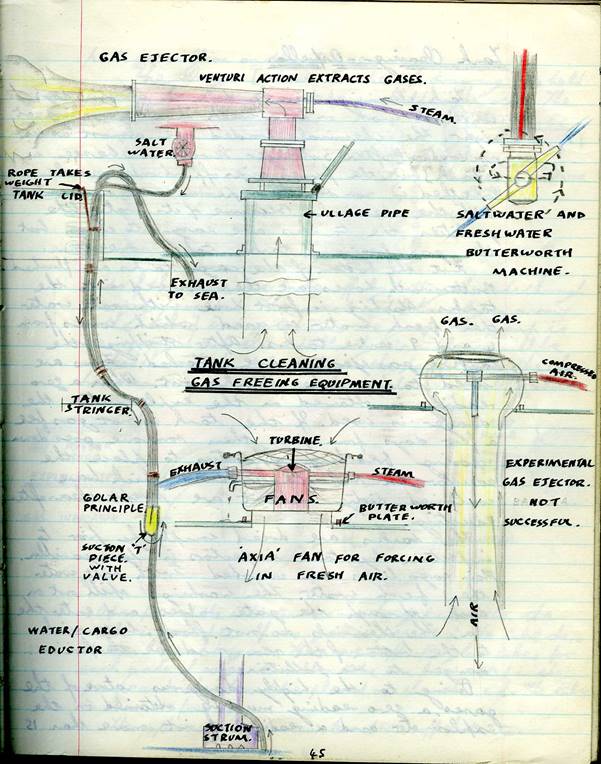 GAS EJECTOR.
VENTURI ACTION EXTRACTS GASES.
STEAM.
SALT
WATER.
ROPE TAKES
WEIGHT
TANK LID
ULLAGE PIPE
SALTWATER AND
FRESHWATER
BUTTERWORTH
MACHINE.
EXHAUST
TO SEA.
GAS. GAS.
TANK CLEANING
GAS FREEING EQUIPMENT.
COMPRESSED
AIR.
TANK
STRINGER.
TURBINE.
EXHAUST
STEAM.
FANS.
EXPERIMENTAL
GAS EJECTOR.
NOT
SUCCESSFUL.
GOLAR
PRINCIPLE
BUTTERWORTH
PLATE.
SUCTION 'T'
PIECE.
WITH
VALVE.
'AXIA' FAN FOR FORCING
IN FRESH AIR.
AIR
WATER/CARGO
EDUCTOR
SUCTION
STRUM.
45